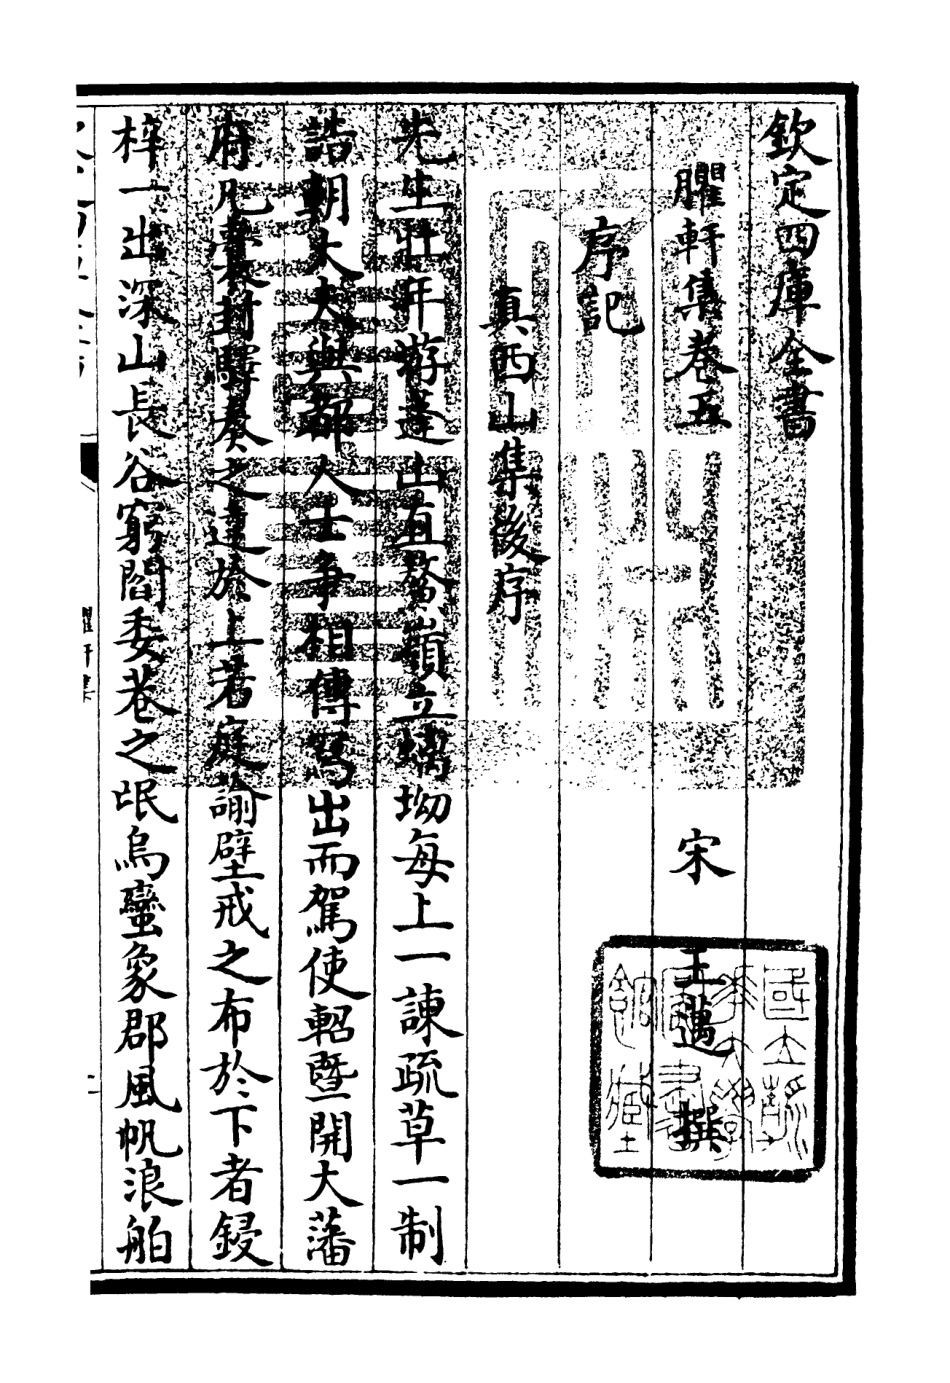 欽定四庫全書
臞軒集卷五
宋 王邁 撰
序記
真西山集後序
先生壯年游蓬山直鰲嶺立螭坳每上一諫疏草一制
誥朝大夫與都人士爭相傳寫出而駕使軺暨開大藩
府凡囊封驛奏之達於上者庭諭壁戒之布於下者鋟
梓一出深山長谷窮閻委巷之氓烏蠻象郡風帆浪舶
臞軒集